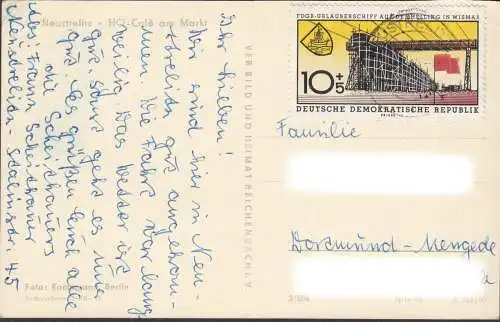 Neustrelitz - HO-Café am Markt
Ihr Lieben!
Wir sind hier in Neu-
strelitz gut angekom-
men. Die Fahrt war lang-
weilig. Das Wetter ist
gut, sonst geht es uns
gut. Es grüßen Euch alle
die Scheithauers
Abs: Franz Scheithauer
Neustrelitz - Stalinstr. 45
Foto: Berlin
VEB BILD UND HEIMAT REICHENBACH I. V.
FDGB-URLAUBERSCHIFF AUF DER HELLING IN WISMAR
10+5
DEUTSCHE DEMOKRATISCHE REPUBLIK
Familie
Dortmund-Mengede